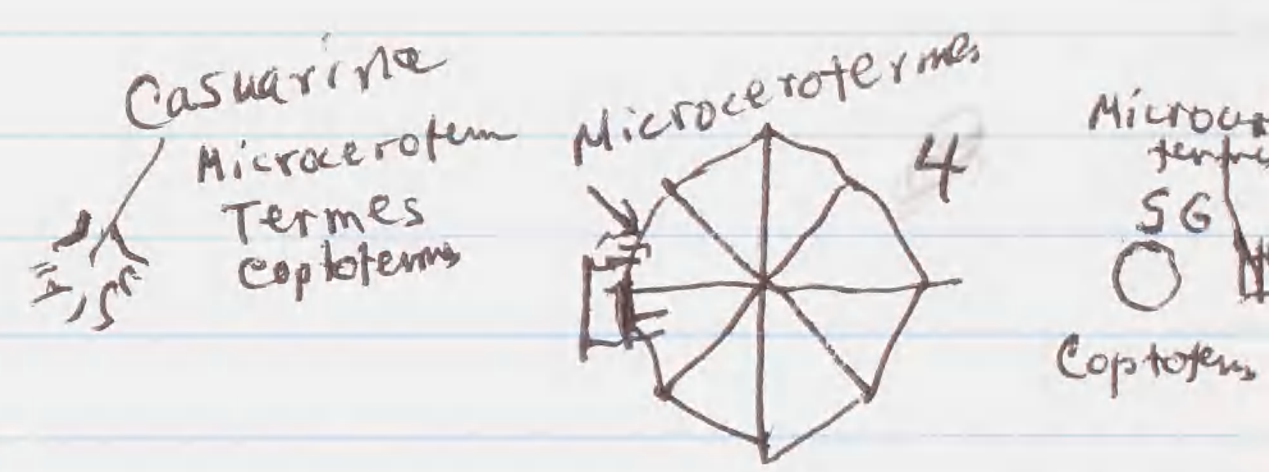 Casuarina
Microceroterm
Termes
Coptoterms
Microcerotermes
4
SG
Coptoterms